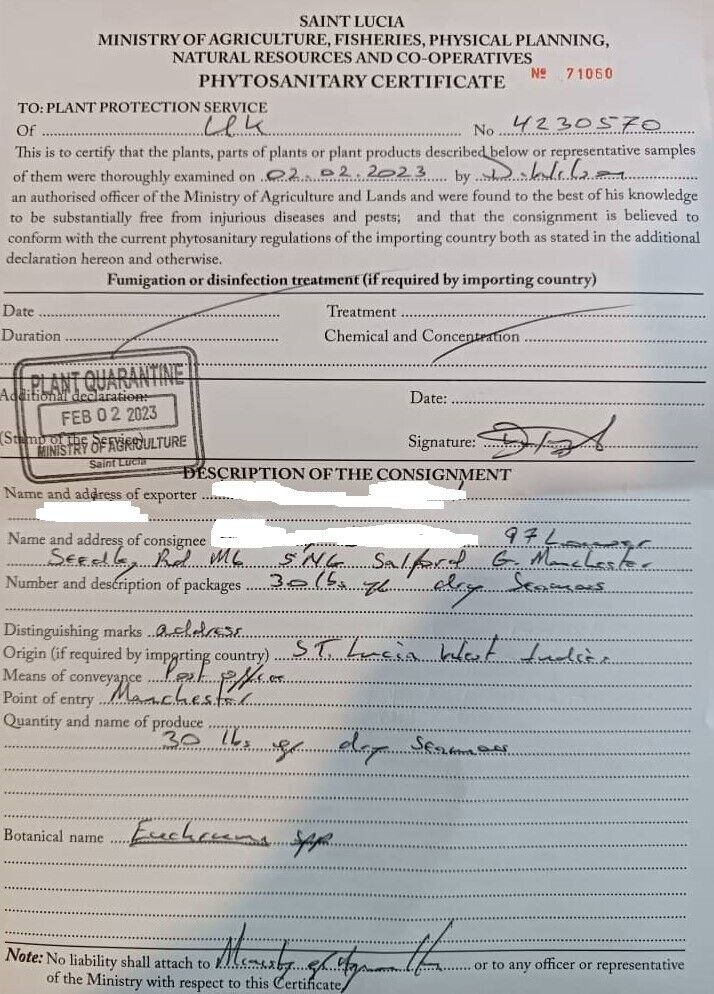 SAINT LUCIA
MINISTRY OF AGRICULTURE, FISHERIES, PHYSICAL PLANNING,
NATURAL RESOURCES AND CO-OPERATIVES
PHYTOSANITARY CERTIFICATE Nº 71060
TO: PLANT PROTECTION SERVICE
Of UK No 4230570
This is to certify that the plants, parts of plants or plant products described below or representative samples
of them were thoroughly examined on 02.02.2023 by
an authorised officer of the Ministry of Agriculture and Lands and were found to the best of his knowledge
to be substantially free from injurious diseases and pests; and that the consignment is believed to
conform with the current phytosanitary regulations of the importing country both as stated in the additional
declaration hereon and otherwise.
Fumigation or disinfection treatment (if required by importing country)
Date Treatment
Duration Chemical and Concentration
PLANT QUARANTINE
Additional declaration: Date:
FEB 02 2023
(Stamp of the Service) Signature:
MINISTRY OF AGRICULTURE
Saint Lucia
DESCRIPTION OF THE CONSIGNMENT
Name and address of exporter
Name and address of consignee 97 Lower
Seedley Rd M6 5NG Salford G. Manchester
Number and description of packages 30 lbs of dry Seamoss
Distinguishing marks address
Origin (if required by importing country) ST. Lucia West Indies
Means of conveyance Post office
Point of entry Manchester
Quantity and name of produce
30 lbs of dry Seamoss
Botanical name spp
Note: No liability shall attach to Ministry of Agriculture or to any officer or representative
of the Ministry with respect to this Certificate